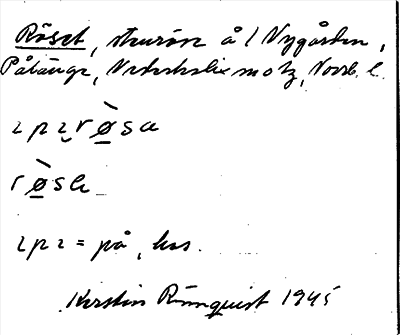 Röset, stenrör å l Nygården,
Pålänge, Nederkalix sn o tg, Norrb. l.
ı p ı r ø̀ s a
r ø̀ s e
ı p ı = på, hos.
Kerstin Rönnquist 1945